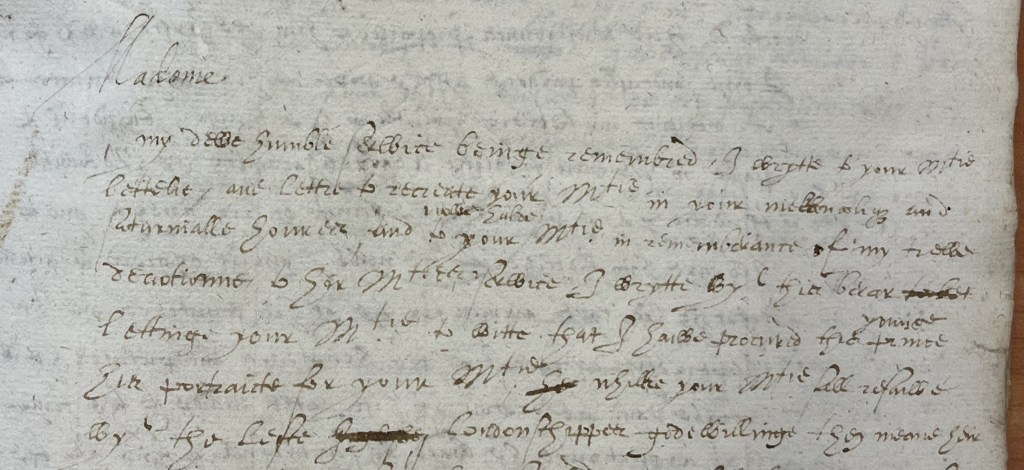 Madame.
my dewe humble serwice beinge remembred, I wrytte to your Mtie
lettelie, ane lettre to recreate your Mtie in your and
Saturnialle houres, and to your Mtie in rememberance of my trewe
devotionne to her Mties serwice, I wrytte by this berar
Lettinge your Mtie to witte that I haiwe procured the prince
younge
his portraicte for your Mtie whilke your Mtie sall resaiwe
by the Lefte Londonschippes godewillinge they meane heir